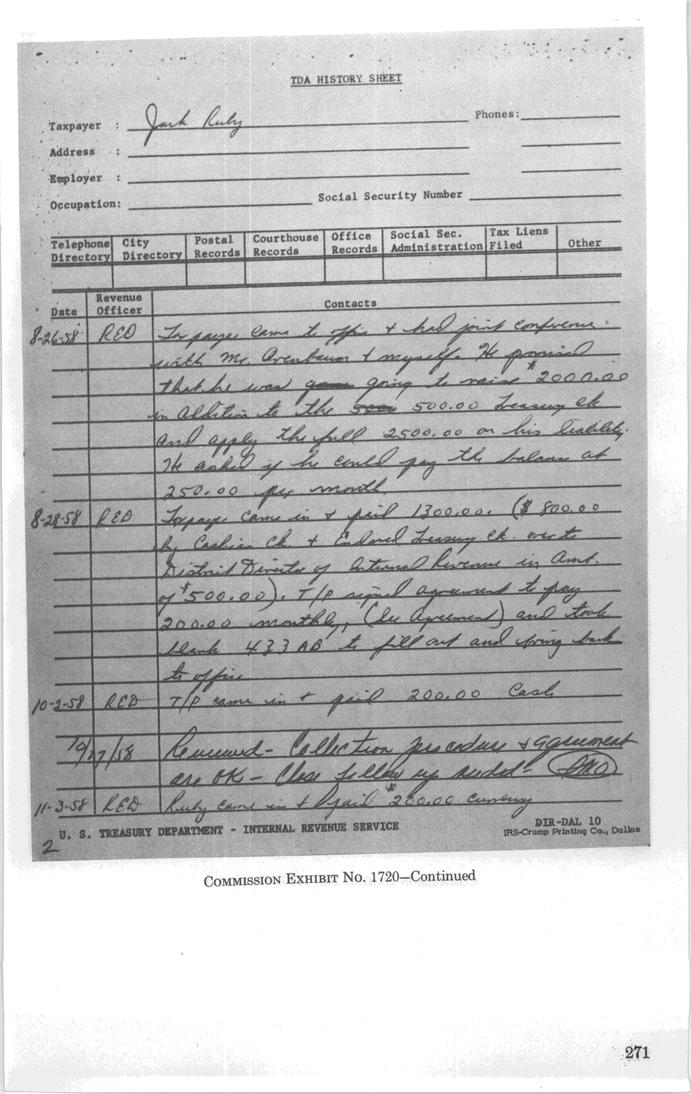 TDA HISTORY SHEET
Taxpayer : Jack Ruby Phones:
Address :
Employer :
Occupation: Social Security Number
Telephone Directory City Directory Postal Records Courthouse Records Office Records Social Sec. Administration Tax Liens Filed Other
Date Revenue Officer Contacts
8-26-58 RED Taxpayer came to office + had joint conference
with Mr. + myself. He promised
that he was going to raise $2000.00
in addition to the 500.00 Treasury ck
and apply the full 2500.00 on his liability.
He asked if he could pay the balance at
250.00 per month.
8-28-58 RED Taxpayer came in + paid 1300.00. ($800.00
by Cashier Ck + Endorsed Treasury ck. over to
District Director of Internal Revenue in Amt.
of $500.00). T/P signed agreement to pay
200.00 monthly, (See Agreement) and took
blank 433 AB to fill out and bring back
to office
10-2-58 RED T/P came in + paid 200.00 Cash
10/27/58 Reviewed - Collection procedure + agreement
are OK - Close follow up needed -
11-3-58 RED Ruby came in + paid $200.00 currency
U. S. TREASURY DEPARTMENT - INTERNAL REVENUE SERVICE DIR-DAL 10
IRS-Crump Printing Co., Dallas
2
COMMISSION EXHIBIT No. 1720—Continued
271